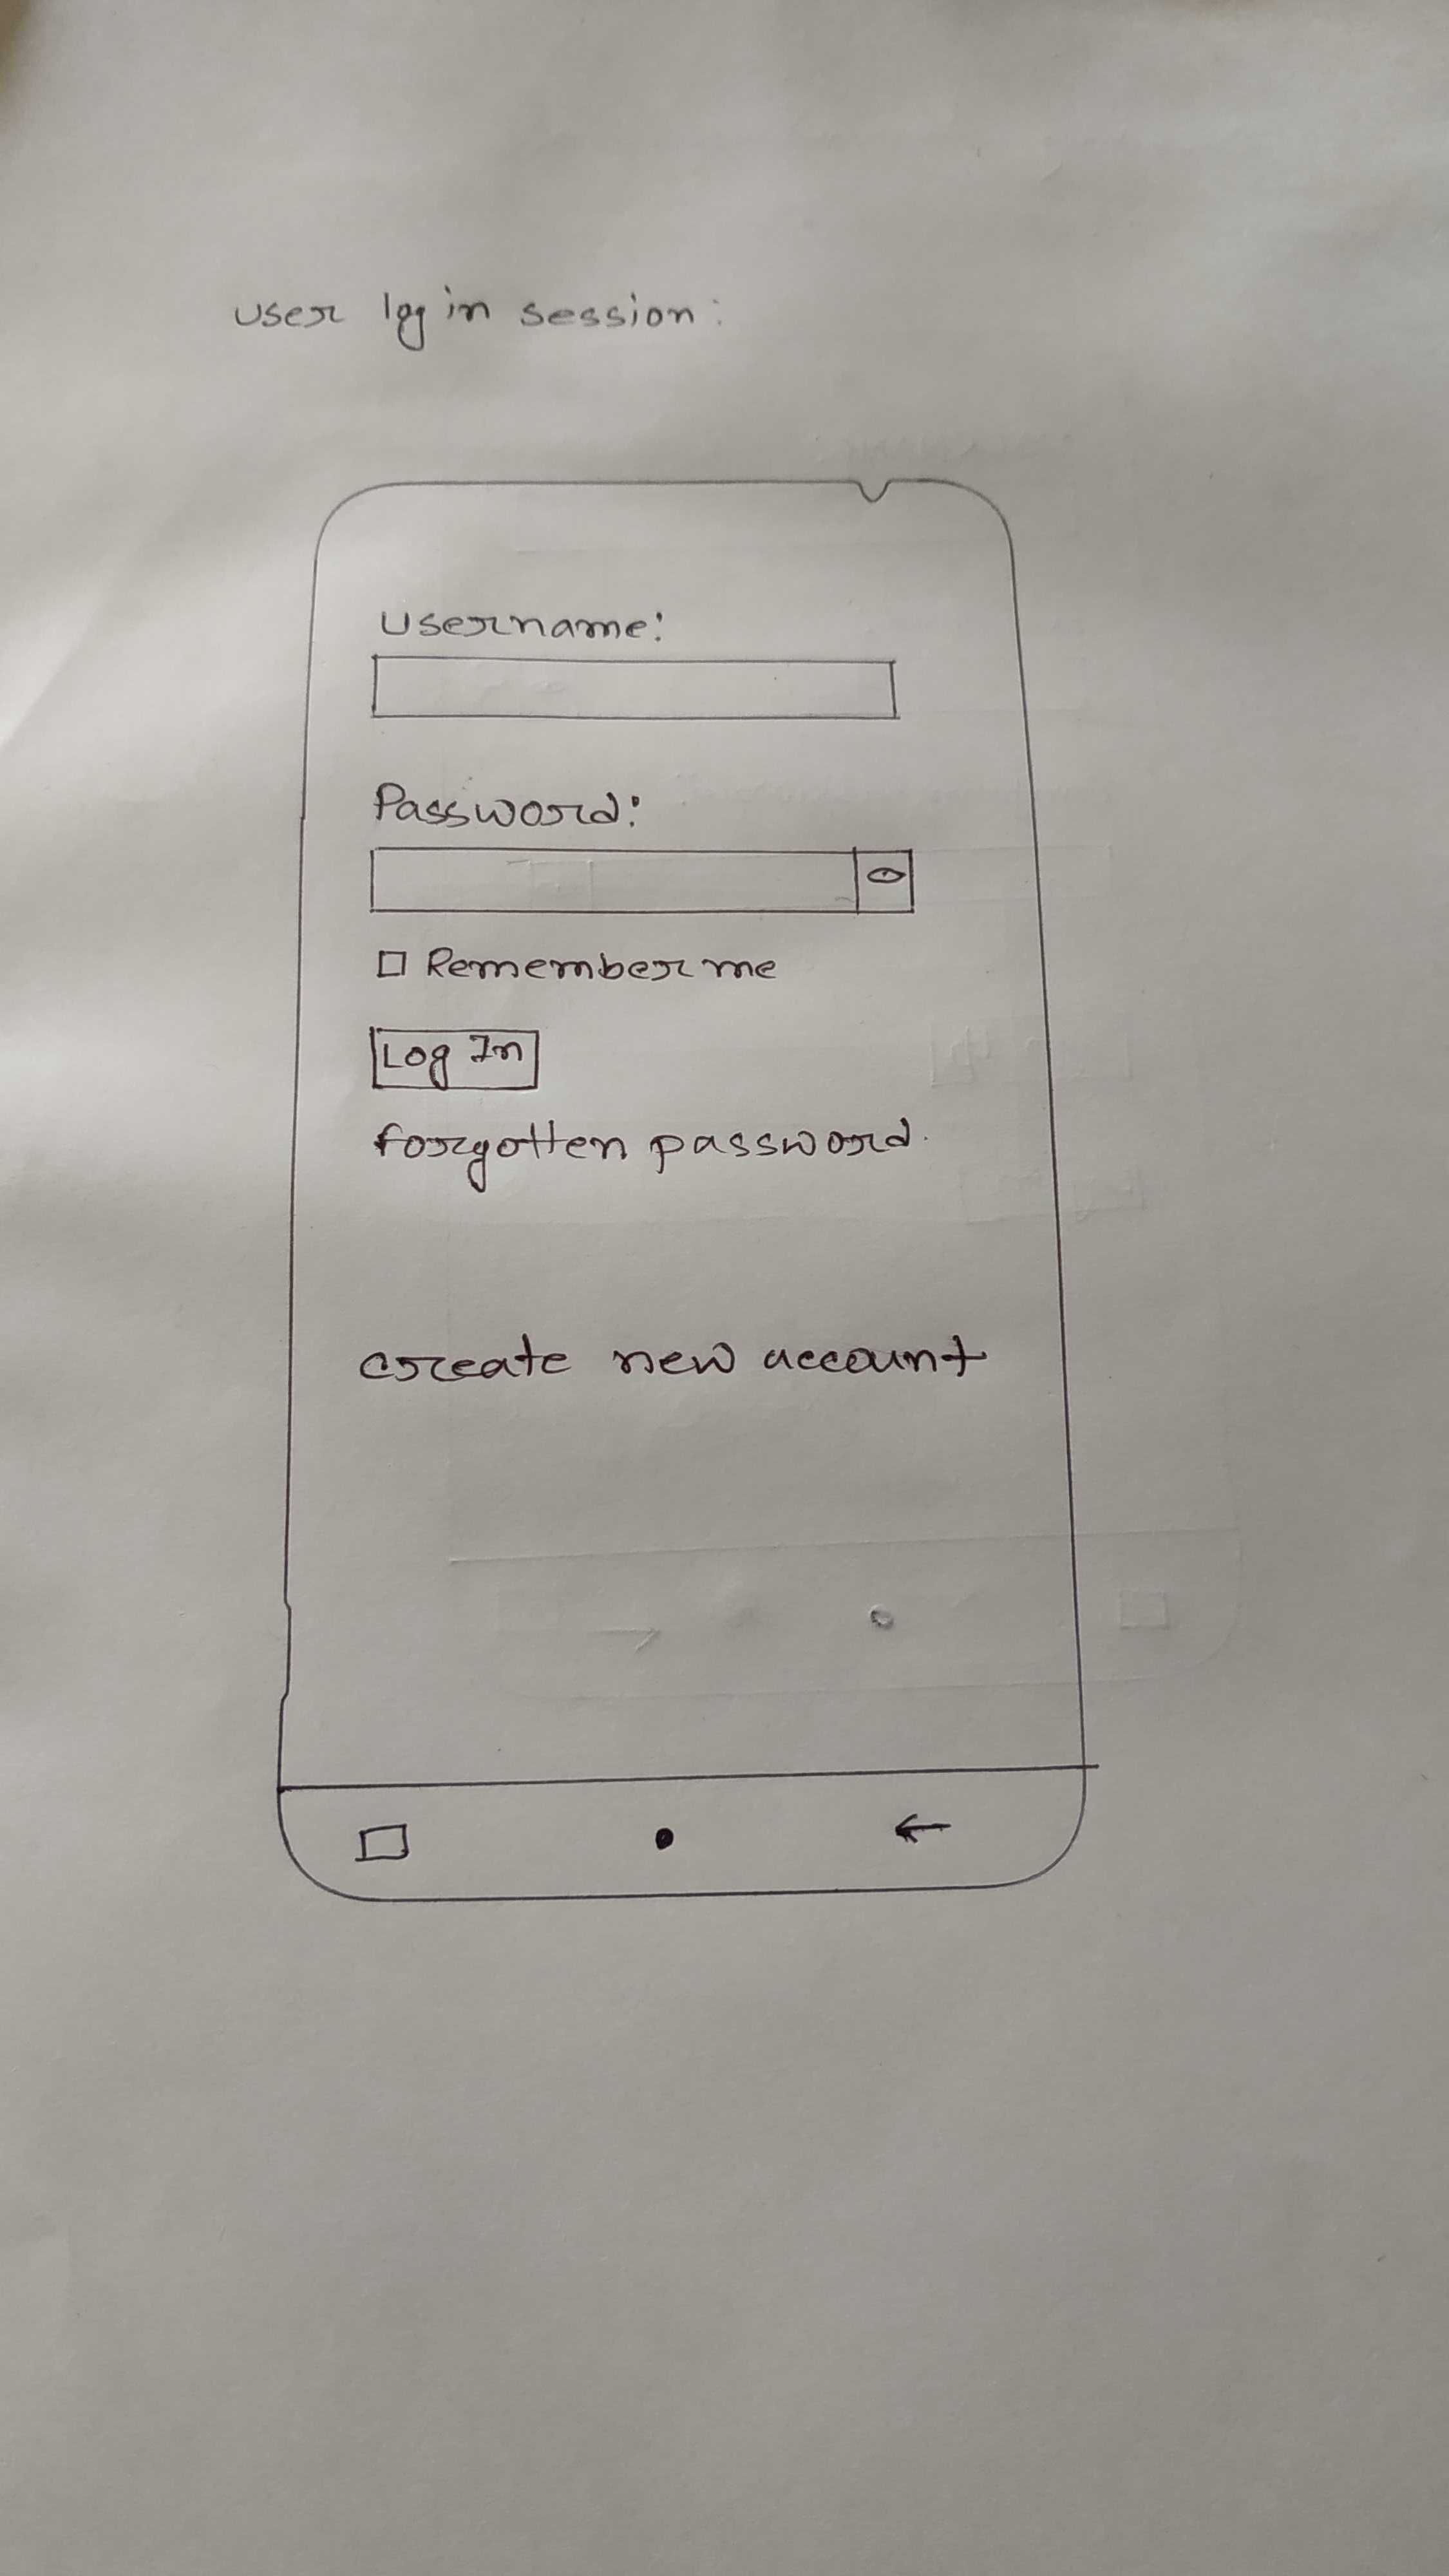 user log in session:
username:
Password:
Remember me
Log In
forgotten password.
create new account